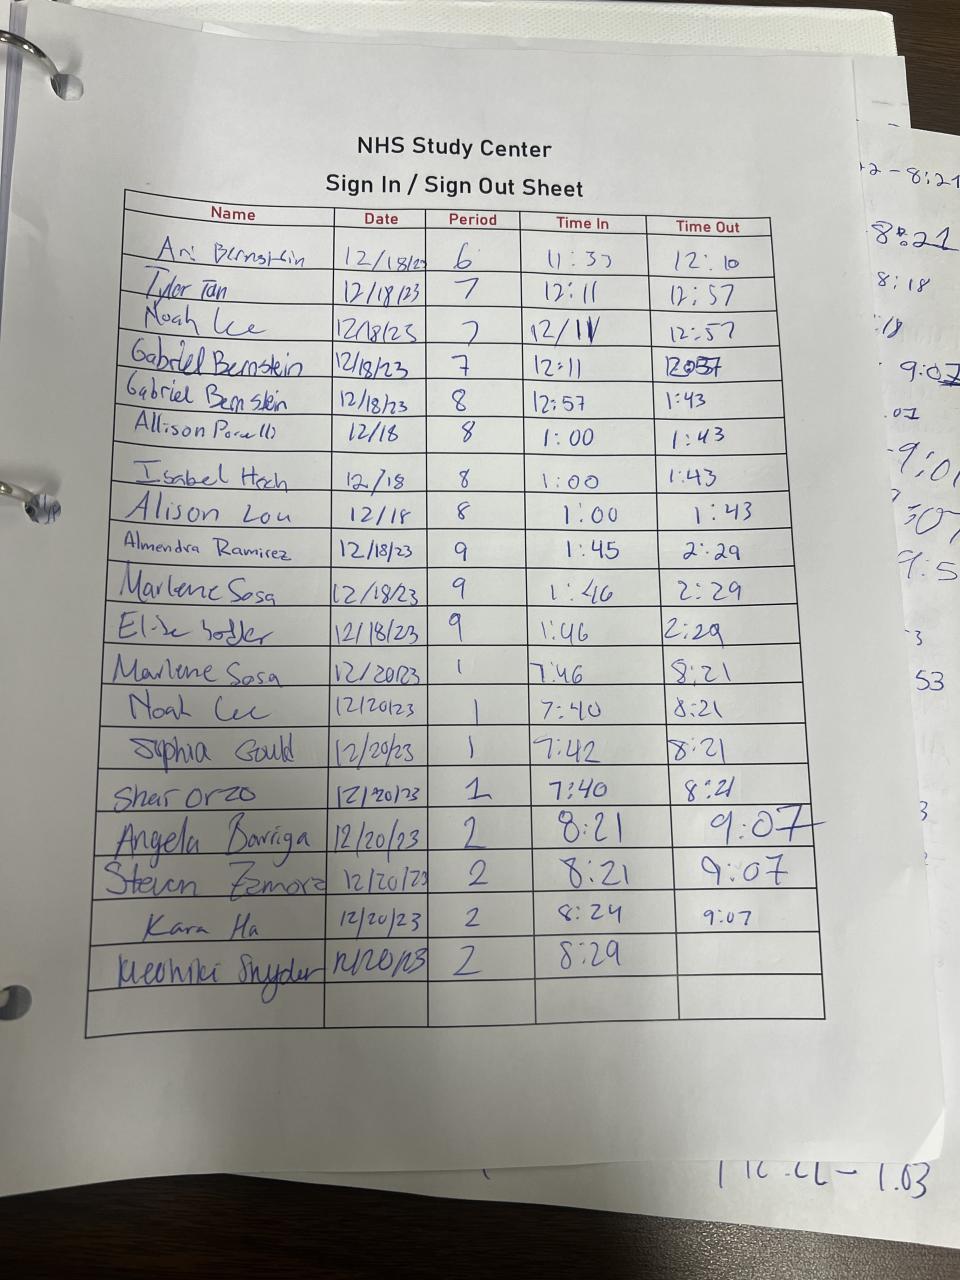 NHS Study Center
Sign In / Sign Out Sheet
Name Date Period Time In Time Out
Ari Bernstein 12/18/23 6 11:33 12:10
Tyler Tan 12/18/23 7 12:11 12:57
Noah Lee 12/18/23 7 12/11 12:57
Gabriel Bernstein 12/18/23 7 12:11 12:57
Gabriel Bernstein 12/18/23 8 12:57 1:43
Allison 12/18 8 1:00 1:43
Isabel Hoch 12/18 8 1:00 1:43
Alison Lou 12/18 8 1:00 1:43
Almendra Ramirez 12/18/23 9 1:45 2:29
Marlene Sosa 12/18/23 9 1:46 2:29
Elise 12/18/23 9 1:46 2:29
Marlene Sosa 12/20/23 1 7:46 8:21
Noah Lee 12/20/23 1 7:40 8:21
Sophia Gould 12/20/23 1 7:42 8:21
Shai Orzo 12/20/23 1 7:40 8:21
Angela Barriga 12/20/23 2 8:21 9:07
Steven Zamora 12/20/23 2 8:21 9:07
Kara Ha 12/20/23 2 8:24 9:07
Snyder 12/20/23 2 8:29
- 8:21
8:21
8:18
:18
9:07
.07
-9:0
:07
9:5
3
53
3
- 1:03